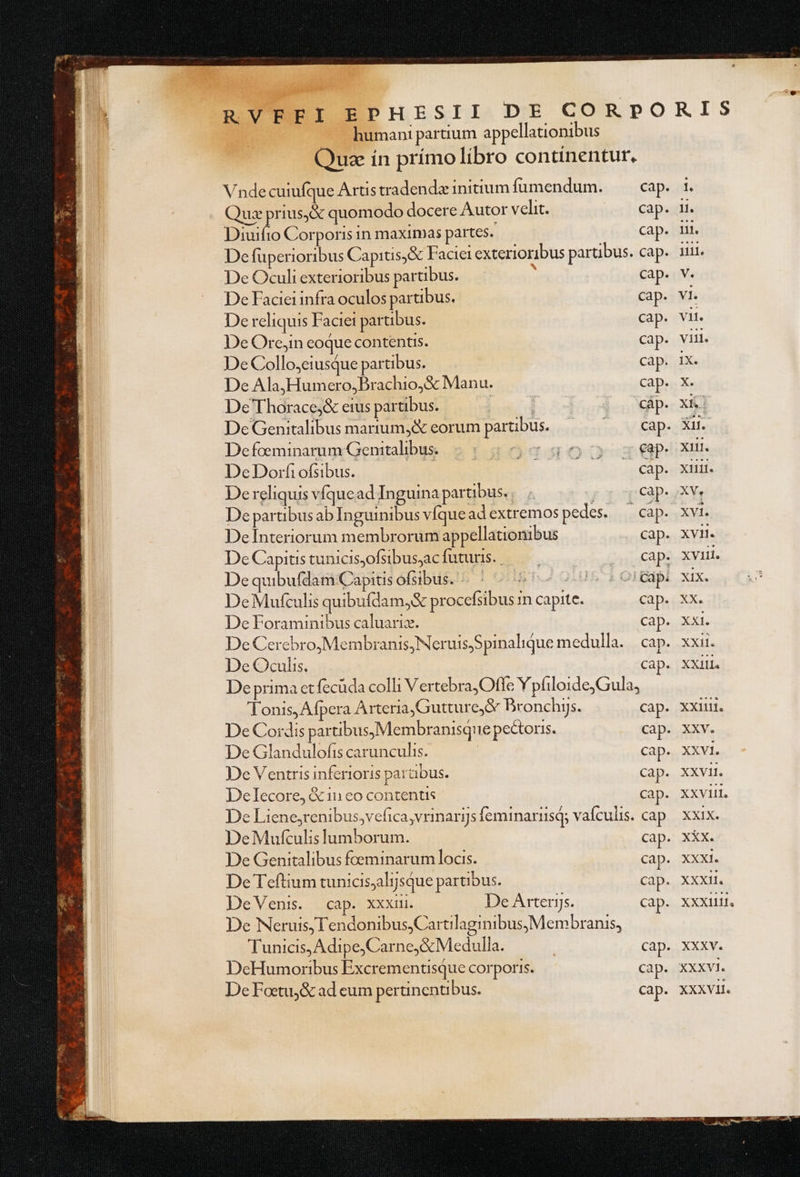 RVFFI EPHESII DE CORPORIS
humani partium appellationibus
Quæ in primo libro continentur,
Vnde cuiuſque Artis tradendæ initium ſumendum. cap. i.
Quæ prius,& quomodo docere Autor velit. cap. ii.
Diuiſio Corporis in maximas partes. cap. iii.
De ſuperioribus Capitis,& Faciei exterioribus partibus. cap. iiii.
De Oculi exterioribus partibus. cap. v.
De Faciei infra oculos partibus. cap. vi.
De reliquis Faciei partibus. cap. vii.
De Ore,in eoque contentis. cap. viii.
De Collo,eiusque partibus. cap. ix.
De Ala,Humero,Brachio,& Manu. cap. x.
De Thorace,& eius partibus. cap. xi.
De Genitalibus marium,& eorum partibus. cap. xii.
De fœminarum Genitalibus. cap. xiii.
De Dorſi oſsibus. cap. xiiii.
De reliquis vſque ad Inguina partibus. cap. xv.
De partibus ab Inguinibus vſque ad extremos pedes. cap. xvi.
De Interiorum membrorum appellationibus cap. xvii.
De Capitis tunicis,oſsibus,ac ſuturis. cap. xviii.
De quibuſdam Capitis oſsibus. cap. xix.
De Muſculis quibuſdam,& proceſsibus in capite. cap. xx.
De Foraminibus caluariæ. cap. xxi.
De Cerebro,Membranis,Neruis,Spinalique medulla. cap. xxii.
De Oculis. cap. xxiii.
De prima et ſecūda colli Vertebra,Oſſe Ypſiloide,Gula,
Tonis,Aſpera Arteria,Gutture,& Bronchijs. cap. xxiiii.
De Cordis partibus,Membranisque pectoris. cap. xxv.
De Glanduloſis carunculis. cap. xxvi.
De Ventris inferioris partibus. cap. xxvii.
De Iecore,& in eo contentis cap. xxviii.
De Liene,renibus,veſica,vrinarijs ſeminariisq; vaſculis. cap xxix.
De Muſculis lumborum. cap. xxx.
De Genitalibus fœminarum locis. cap. xxxi.
De Teſtium tunicis,alijsque partibus. cap. xxxii.
De Venis. cap. xxxiii. De Arterijs. cap. xxxiiii.
De Neruis,Tendonibus,Cartilaginibus,Membranis,
Tunicis,Adipe,Carne,& Medulla. cap. xxxv.
De Humoribus Excrementisque corporis. cap. xxxvi.
De Fœtu,& ad eum pertinentibus. cap. xxxvii.